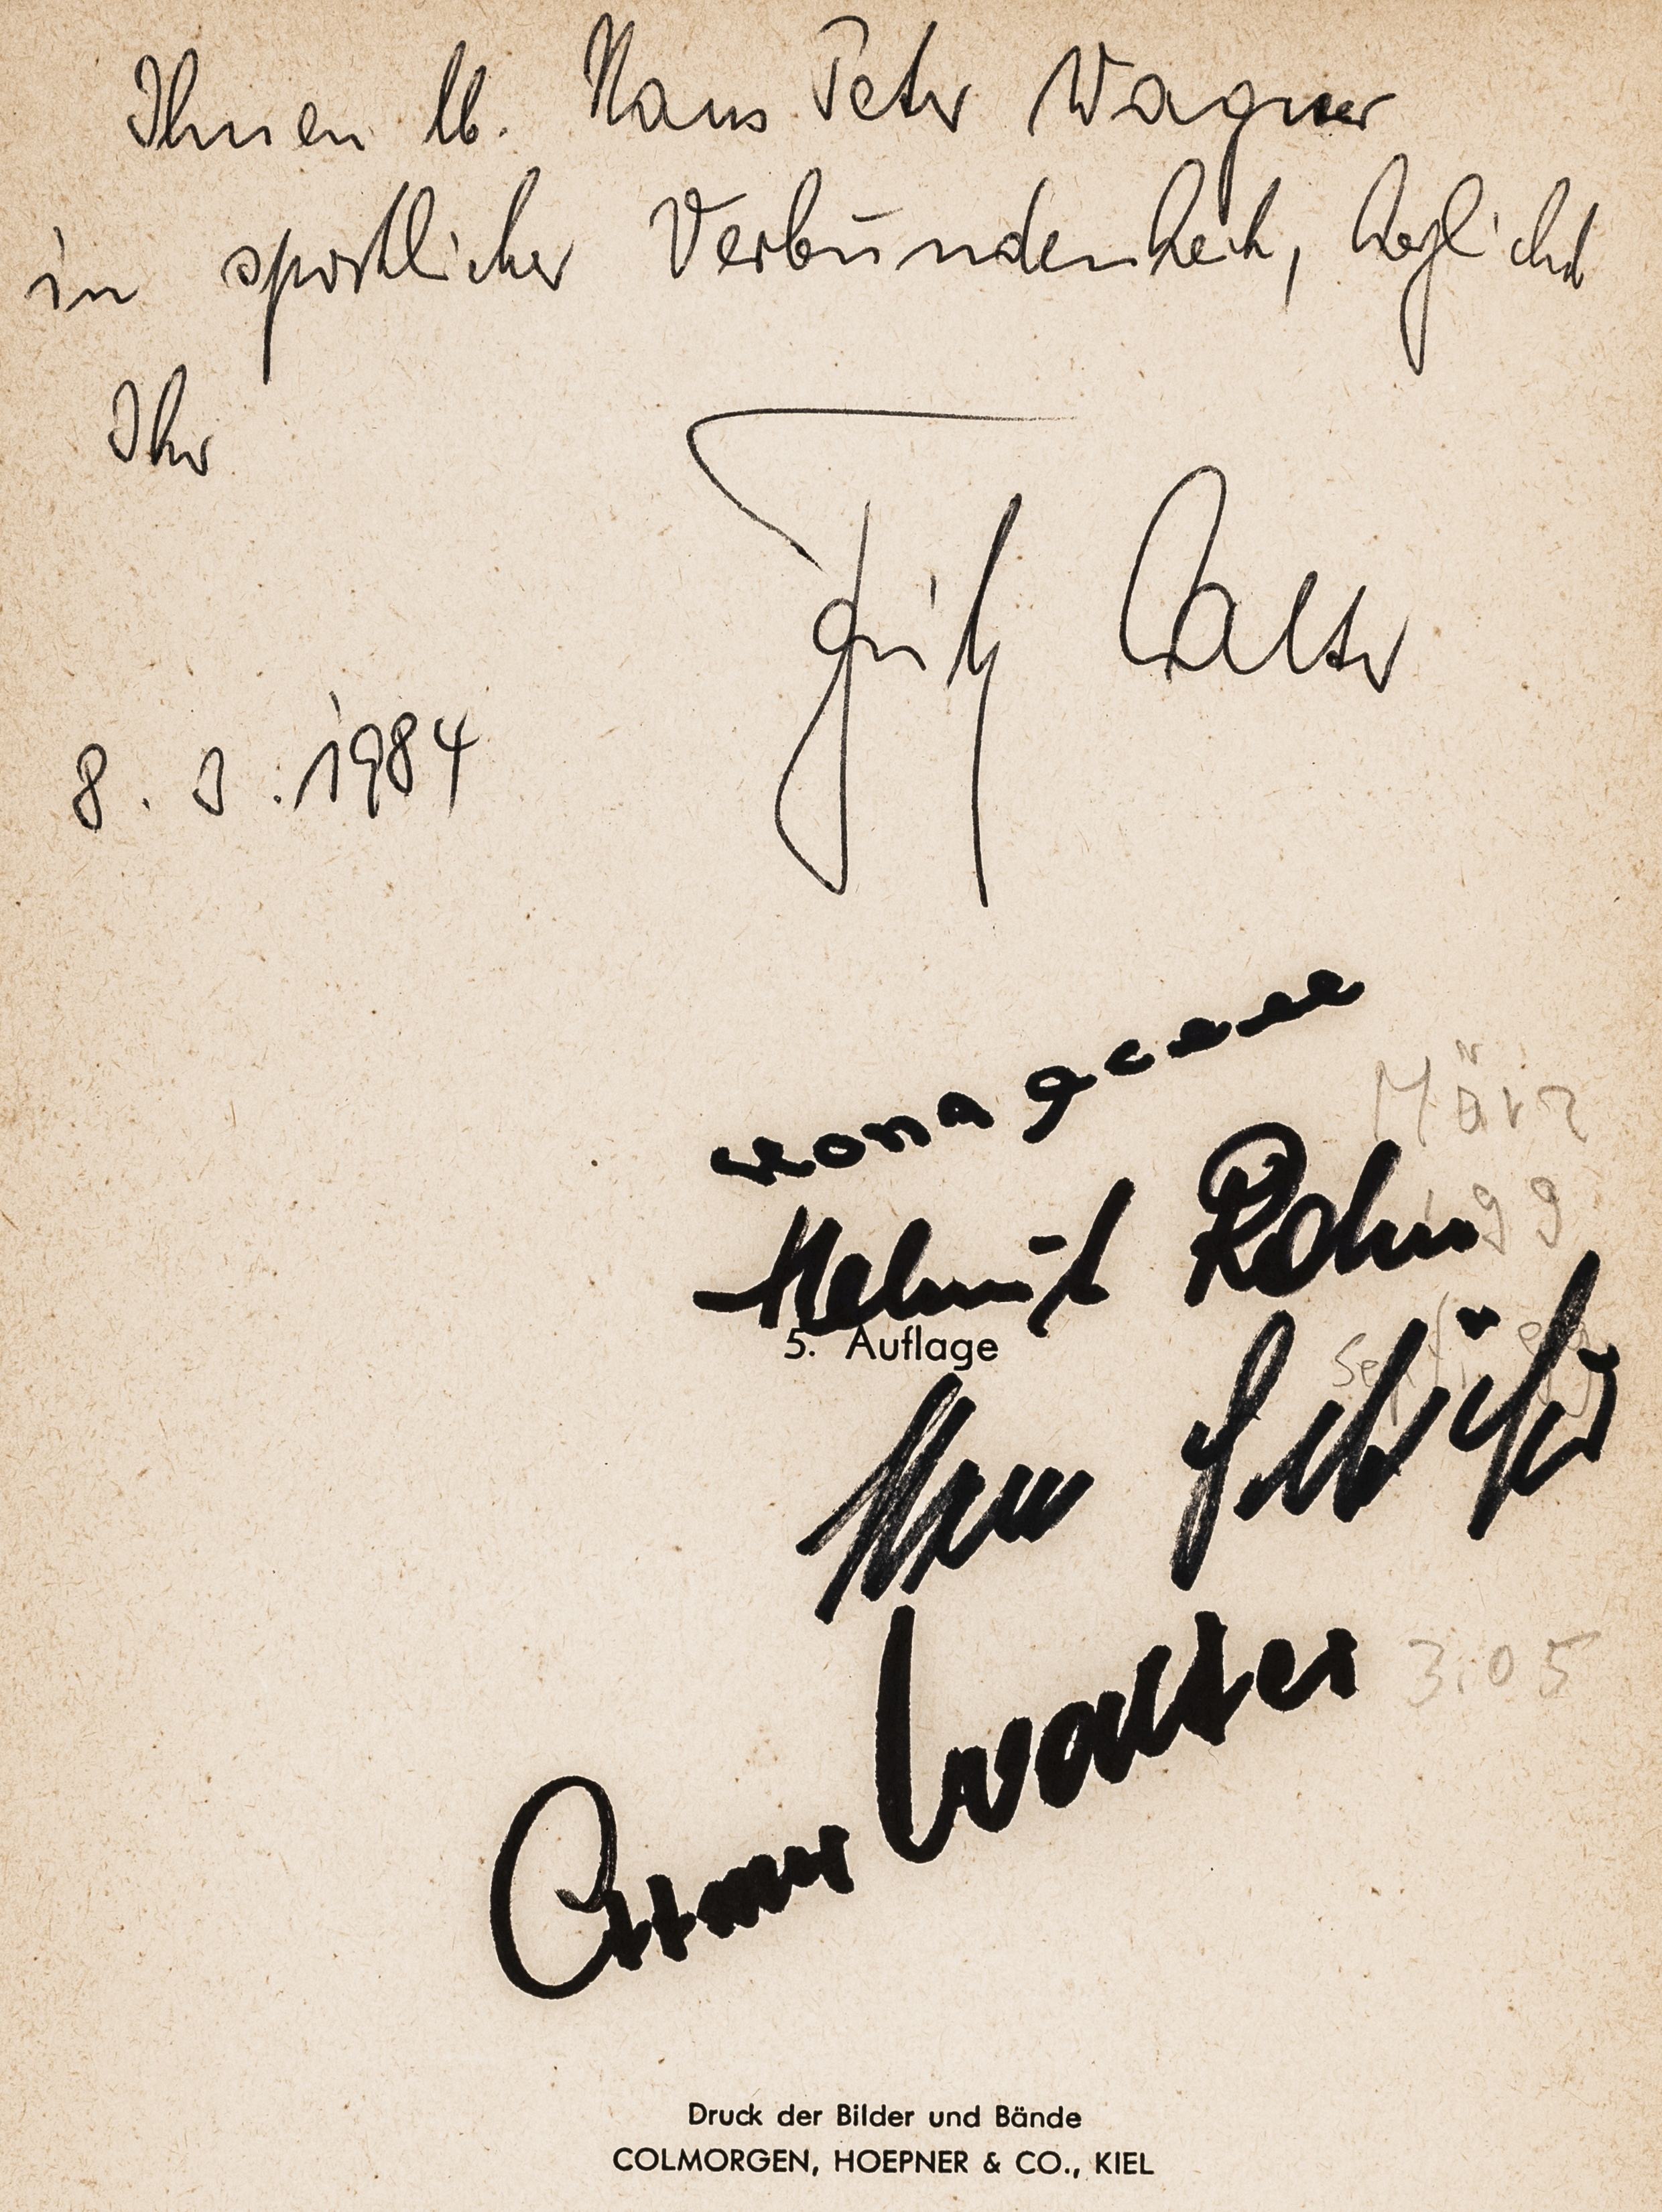 Ihnen lb. Hans Peter Wagner
in sportlicher Verbundenheit, herzlichst
Ihr
Fritz Walter
8. 3. 1984
März
99
Helmut Rahn
5. Auflage
Hans Schäfer
3.05
Ottmar Walter
Druck der Bilder und Bände
COLMORGEN, HOEPNER & CO., KIEL